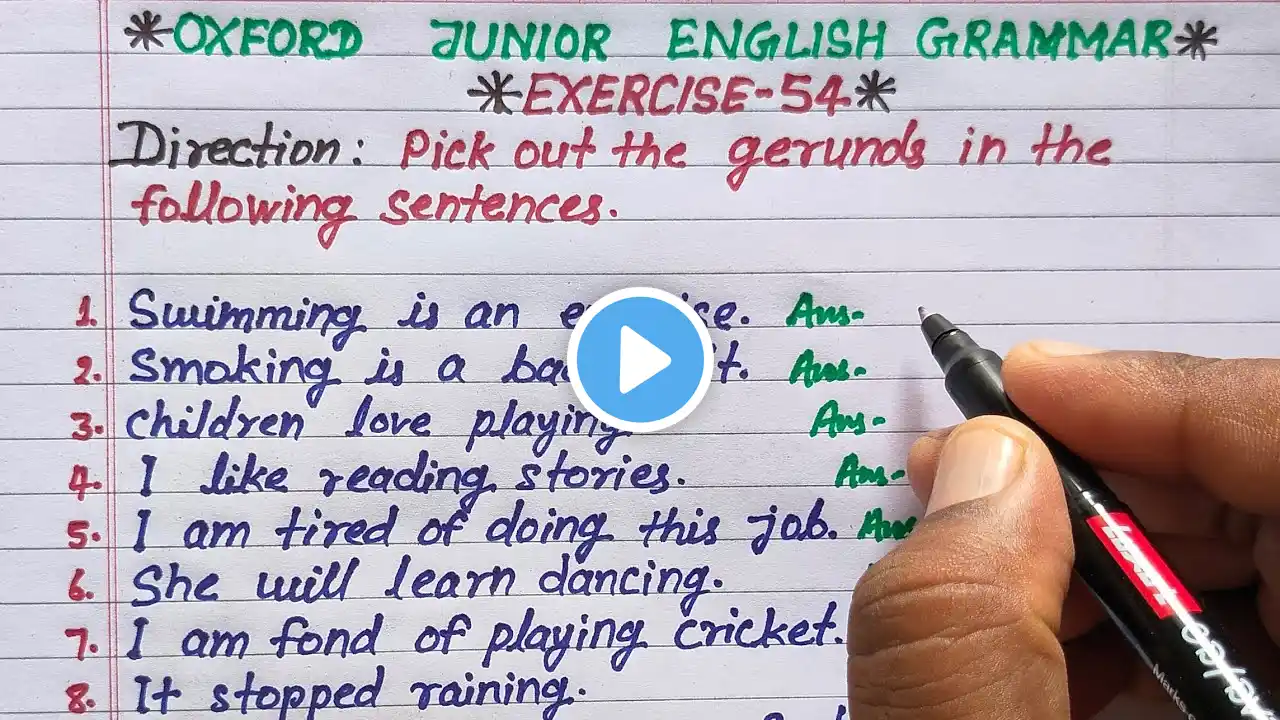 *OXFORD JUNIOR ENGLISH GRAMMAR*
*EXERCISE-54*
Direction: Pick out the gerunds in the
following sentences.
1. Swimming is an . Ans-
2. Smoking is a . Ans-
3. children love playing. Ans-
4. I like reading stories. Ans-
5. I am tired of doing this job. Ans
6. She will learn dancing.
7. I am fond of playing cricket.
8. It stopped raining.